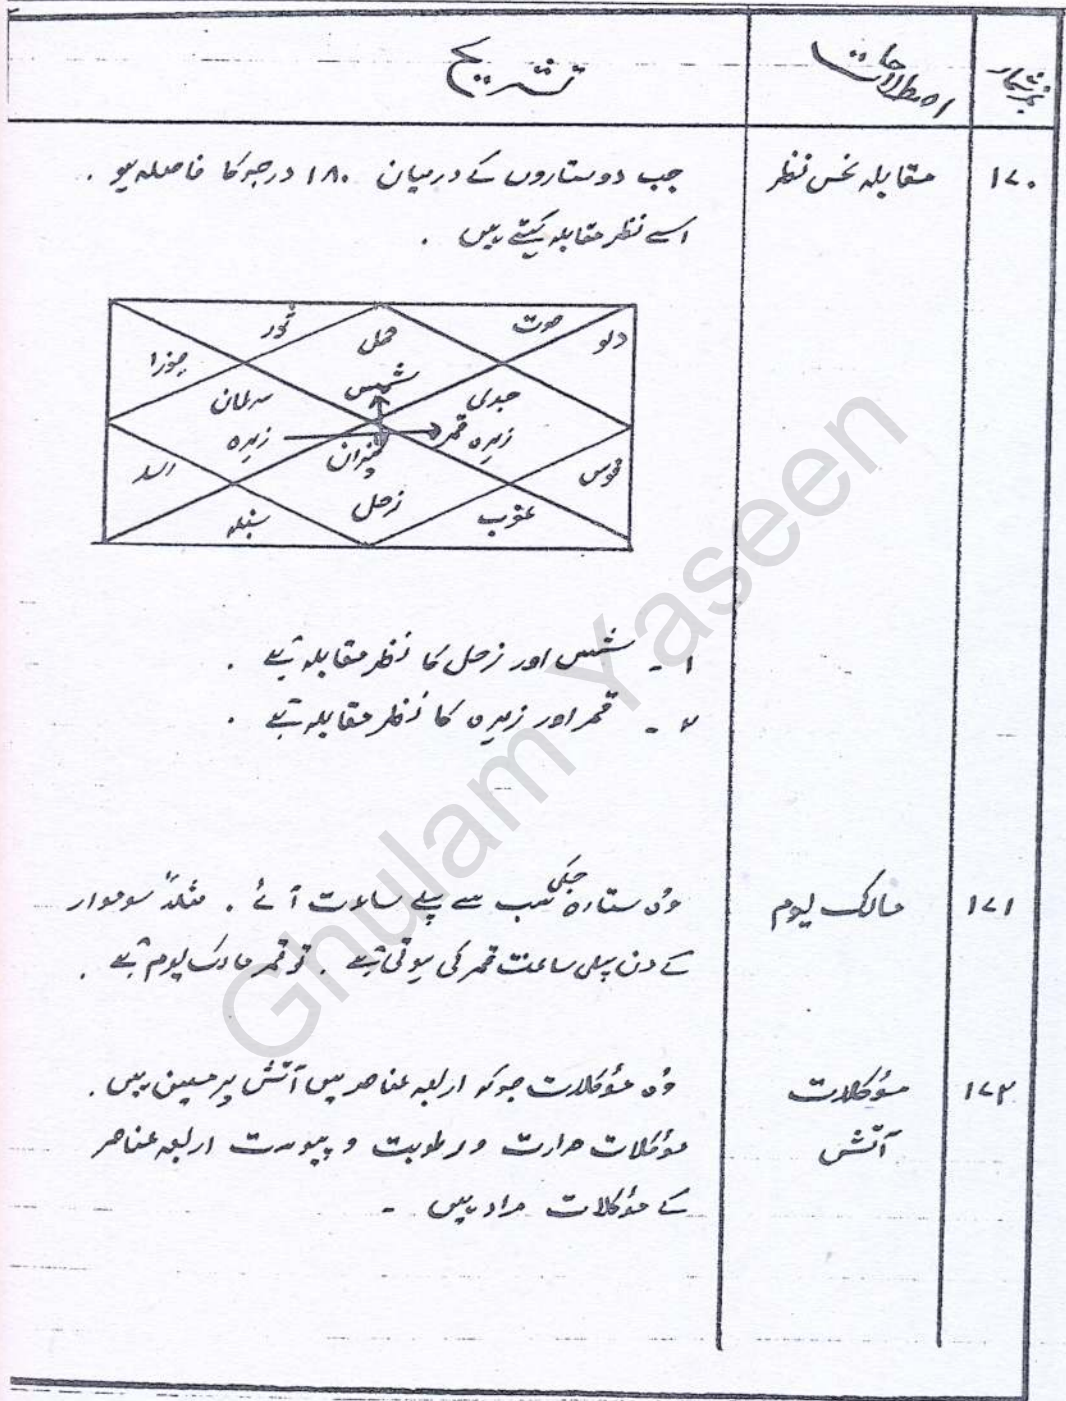 نمبر شمار اصطلاحات تشریح
۱۷۰ مقابلہ نحس نظر جب دو ستاروں کے درمیان ۱۸۰ درجہ کا فاصلہ ہو ۔
اسے نظر مقابلہ کہتے ہیں ۔
ثور حوت
جوزا حمل دلو
سرطان شمس جدی
زہرہ زہرہ قمر
اسد میزان قوس
زحل
سنبلہ عقرب
۱ ۔ شمس اور زحل کا نظر مقابلہ ہے ۔
۲ ۔ قمر اور زہرہ کا نظر مقابلہ ہے ۔
۱۷۱ مالک یوم وہ ستارہ جسکی سب سے پہلے ساعت آئے ۔ مثلاً سوموار
کے دن پہلی ساعت قمر کی ہوتی ہے ۔ تو قمر مالک یوم ہے ۔
۱۷۲ مؤکلات وہ مؤکلات جو کہ اربعہ عناصر میں آتش پر معین ہیں ۔
آتش مؤکلات حرارت و رطوبت و یبوست اربعہ عناصر
کے مؤکلات مراد ہیں ۔
Ghulam Yaseen